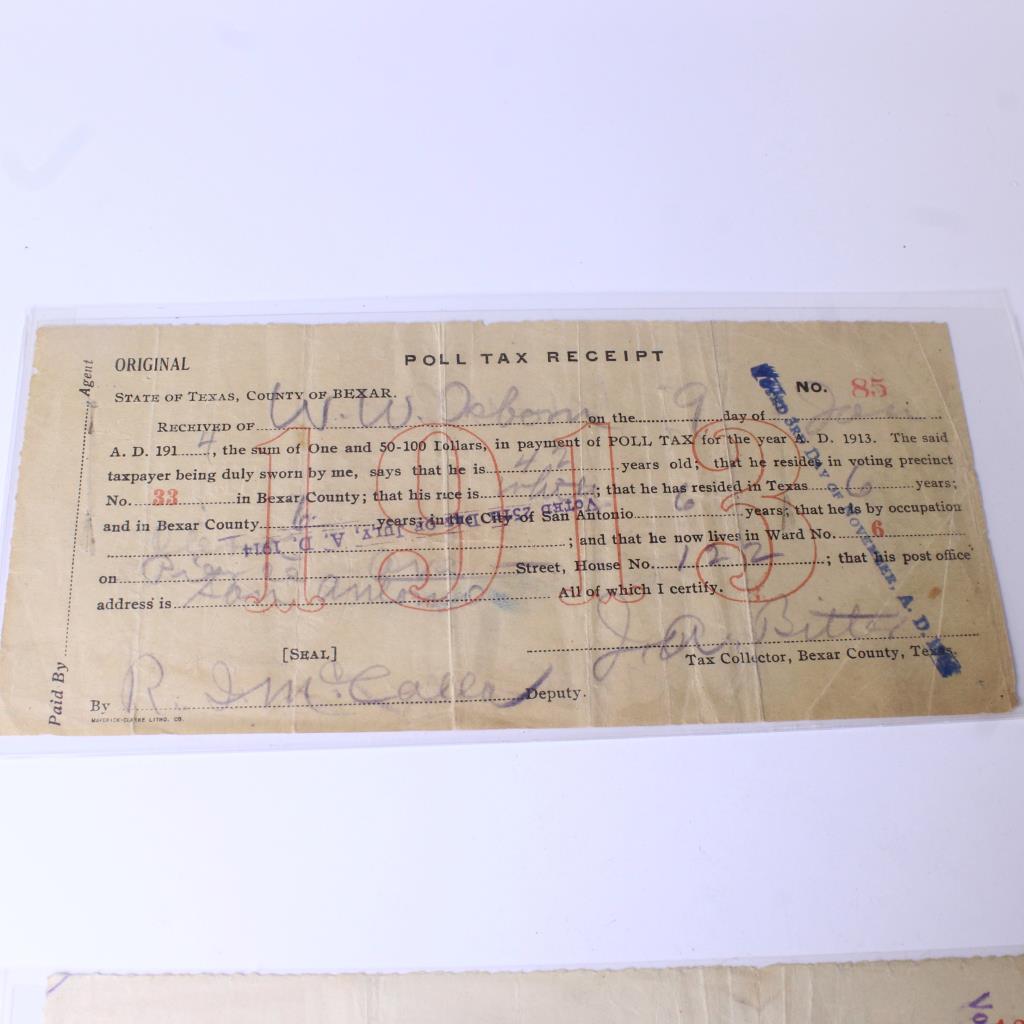 ORIGINAL POLL TAX RECEIPT
STATE OF TEXAS, COUNTY OF BEXAR. No. 85
RECEIVED OF W. W. Osborn on the 9 day of Jan
A. D. 1914, the sum of One and 50-100 Dollars, in payment of POLL TAX for the year A. D. 1913. The said
taxpayer being duly sworn by me, says that he is 42 years old; that he resides in voting precinct
No. 33 in Bexar County; that his race is; that he has resided in Texas 6 years;
and in Bexar County 6 years; in the City of San Antonio 6 years; that he is by occupation
; and that he now lives in Ward No. 6
on Street, House No. 122; that his post office
address is San Antonio All of which I certify.
[SEAL] J. A. Bitter
Tax Collector, Bexar County, Texas.
By R. J. McCaleb Deputy.
MAVERICK-CLARKE LITHO. CO.
Paid By Agent
1913
VOTED 25TH DAY OF JULY, A. D. 1914
VOTED 3RD DAY OF NOVEMBER, A. D.
Vo